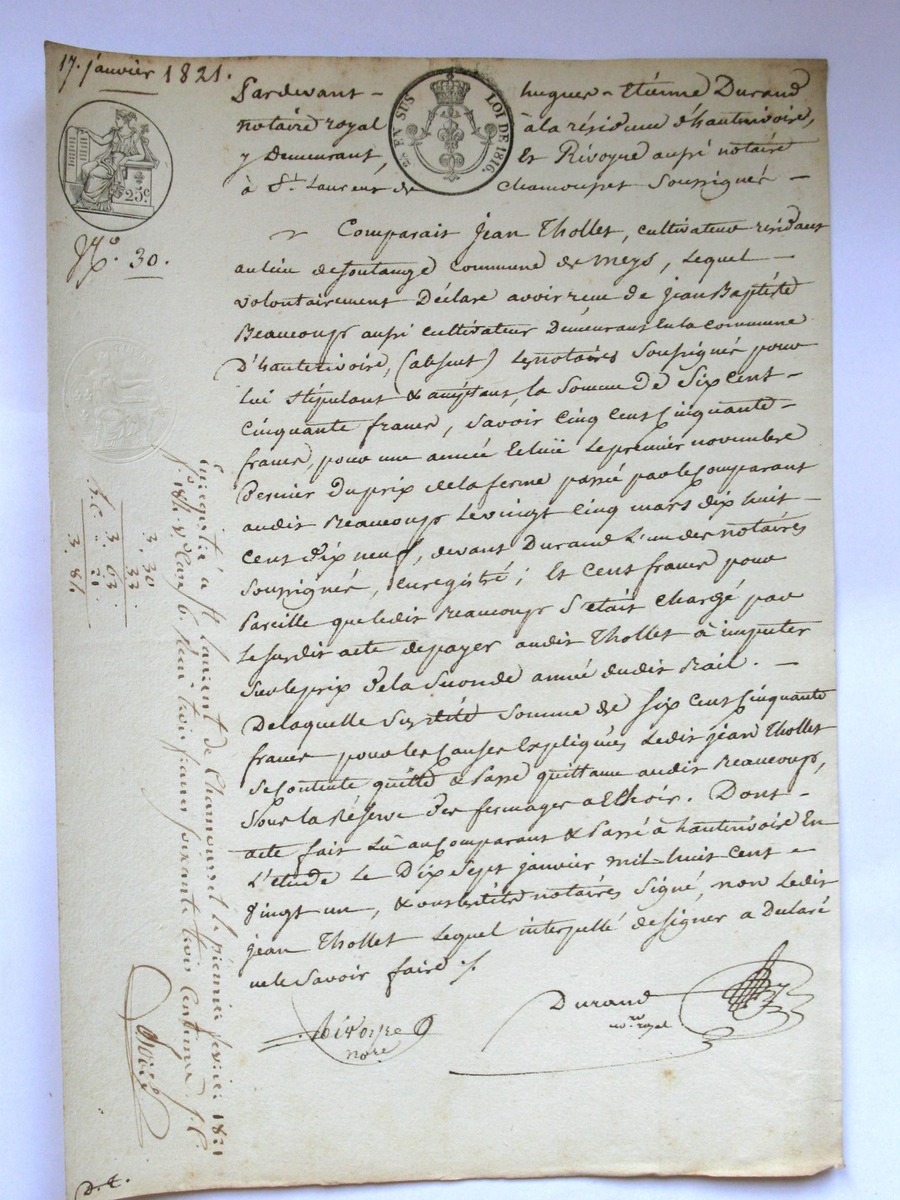 17. janvier 1821.
Pardevant - hugues-Etiénne Durand
notaire royal à la résidence d'hauterivoire,
y demeurant, Et Rivoyre aussi notaire
à St. Laurent de Chamousset Soussignés -
EN SUS LOI DE 1816.
25 c
No. 30.
Comparait jean Thollet, cultivateur résidant
au lieu de soulange commune de meys, Lequel -
volontairement Déclare avoir reçu de jean Baptiste
Beaucoup aussi cultivateur Démeurant En la commune
D'hauterivoire, (absent) Les notaires Soussignés pour
Lui Stipulant & acceptant, la Somme de Six Cent -
Cinquante francs, Savoir Cinq Cent Cinquante -
francs, pour une année Echue Le premier novembre
Dernier Du prix de la ferme passé par le Comparant
audit Beaucoup Le vingt Cinq mars dix huit -
Cent Dix neuf, devant Durand L'un des notaires
Soussignés, Enregistré; Et Cent francs pour
Pareille que ledit Beaucoup S'était Chargé par
Le susdit acte de payer audit Thollet à imputer
Sur le prix De la Seconde année dudit Bail. -
De laquelle Susditte Somme de Six Cent Cinquante
francs pour les Causes Expliquées Ledit jean Thollet
Se Contente quitte & Passe quittance audit Beaucoup,
Sous la Réserve Des fermages a Echoir. Dont -
acte fait Lû au Comparant & Passé à hauterivoire En
L'étude Le Dix Sept janvier mil-huit Cent -
Vingt un, & ont lesdits notaires Signé, non Ledit
jean Thollet Lequel interpellé de signer a Déclaré
ne le Savoir faire ./.
Rivoyre
nore
Durand
nore royal
Enregistré a St Laurent de Chamousset le premier fevrier 1821
fo 184. vo Case 6. Reçu trois francs soixante trois Centimes
3. 30
33
3. 63
20
3. 84
D. E.